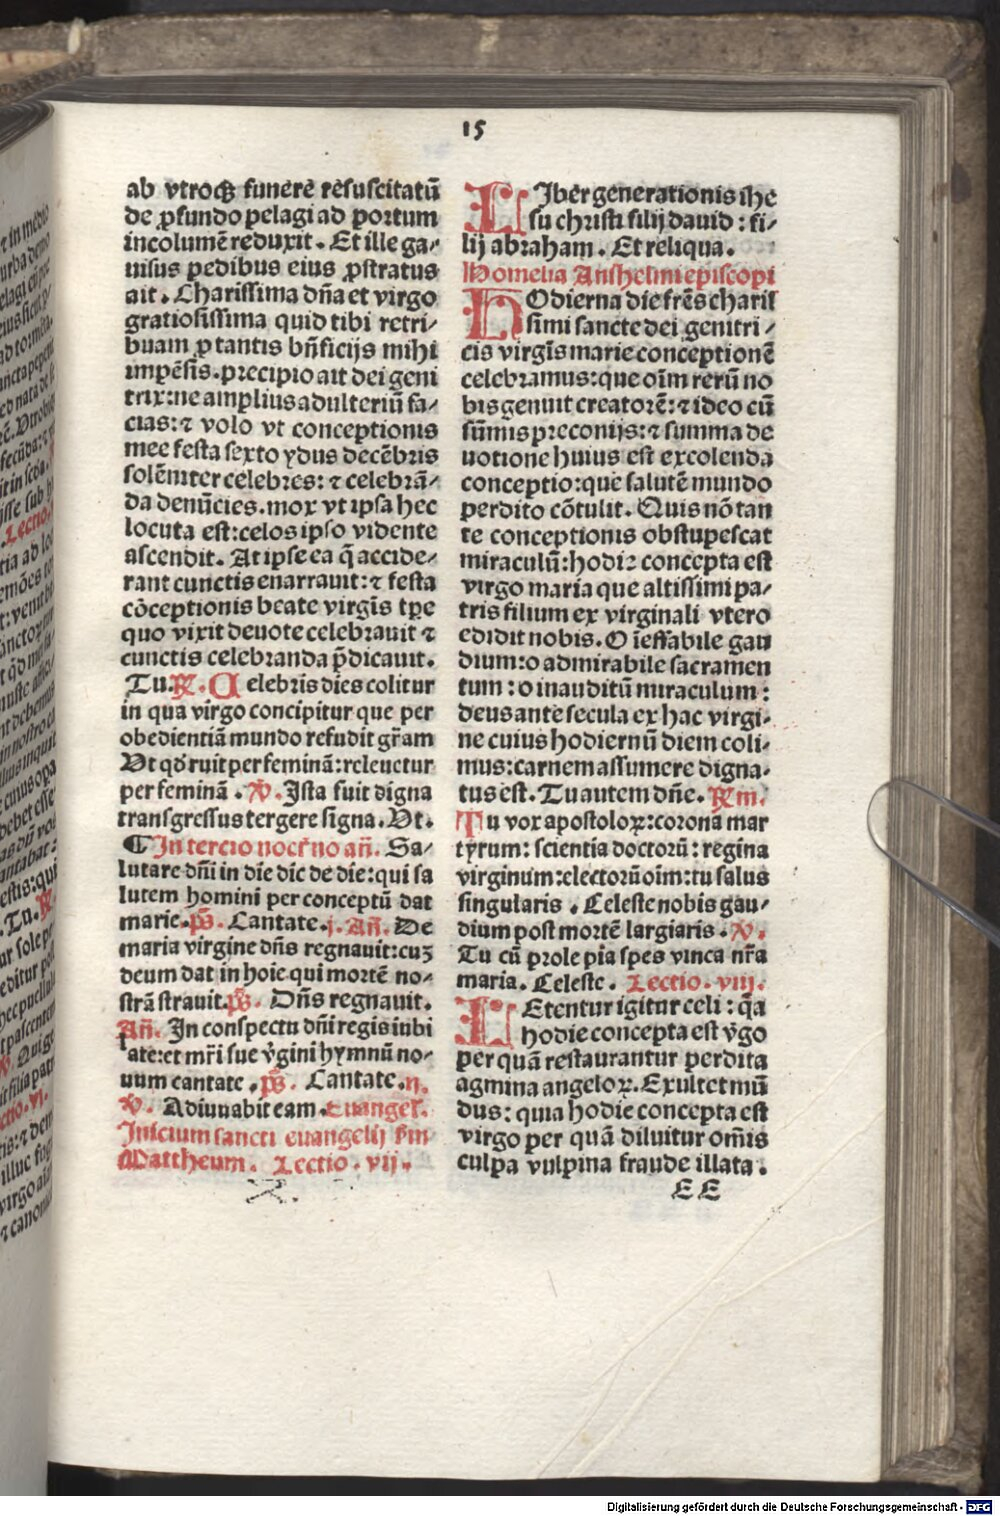 15
ab vtroqꝫ funere resuscitatū
de ꝓfundo pelagi ad portum
incolumē reduxit. Et ille ga⸗
uisus pedibus eius ꝓstratus
ait. Charissima dn̄a et virgo
gratiosissima quid tibi retri⸗
buam ꝓ tantis bn̄ficijs mihi
impēsis. precipio ait dei geni
trix: ne amplius adulteriū fa⸗
cias: ⁊ volo vt conceptionis
mee festa sexto ydus decēbris
solēniter celebres: ⁊ celebrā⸗
da denūcies. mox vt ipsa hec
locuta est: celos ipso vidente
ascendit. At ipse ea q̄ accide⸗
rant cunctis enarrauit: ⁊ festa
cōceptionis beate virgīs tꝑe
quo vixit deuote celebrauit ⁊
cunctis celebranda p̄dicauit.
Tu. ℟. Celebris dies colitur
in qua virgo concipitur que per
obedientiā mundo refudit gr̄am
Vt qd̛ ruit per feminā: releuetur
per feminā. ℣. Ista fuit digna
transgressus tergere signa. Vt.
¶ In tercio noct̛no an̄. Sa⸗
lutare dn̄i in die dic de die: qui sa
lutem homini per conceptū dat
marie. p̄s. Cantate. j. An̄. De
maria virgine dn̄s regnauit: cuꝫ
deum dat in hoīe qui mortē no⸗
strā strauit. p̄s. Dn̄s regnauit.
An̄. In conspectu dn̄i regis iubi
late: et mr̄i sue v̛gini hymnū no⸗
uum cantate. p̄s. Cantate. ij.
℣. Adiuuabit eam. Euangel̛.
Inicium sancti euangelij s̄m
Mattheum. Lectio. vij.
LIber generationis ihe
su christi filij dauid: fi⸗
lij abraham. Et reliqua.
Homelia Anshelmi episcopi
HOdierna die fr̄es charis
simi sancte dei genitri⸗
cis virgīs marie conceptionē
celebramus: que oīm rerū no
bis genuit creatorē: ⁊ ideo cū
sūmis preconijs: ⁊ summa de
uotione huius est excolenda
conceptio: que salutē mundo
perdito cōtulit. Quis nō tan
te conceptionis obstupescat
miraculū: hodie concepta est
virgo maria que altissimi pa⸗
tris filium ex virginali vtero
edidit nobis. O īeffabile gau
dium: o admirabile sacramen
tum: o inauditū miraculum:
deus ante secula ex hac virgi⸗
ne cuius hodiernū diem coli⸗
mus: carnem assumere digna⸗
tus est. Tu autem dn̄e. ℟m.
Tu vox apostoloꝝ: corona mar
tyrum: scientia doctorū: regina
virginum: electorū oīm: tu salus
singularis. Celeste nobis gau⸗
dium post mortē largiaris. ℣.
Tu cū prole pia spes vinca nr̄a
maria. Celeste. Lectio. viij.
LEtentur igitur celi: q̄a
hodie concepta est v̛go
per quā restaurantur perdita
agmina angeloꝝ. Exultet mū
dus: quia hodie concepta est
virgo per quā diluitur om̄is
culpa vulpina fraude illata.
EE
Digitalisierung gefördert durch die Deutsche Forschungsgemeinschaft - DFG